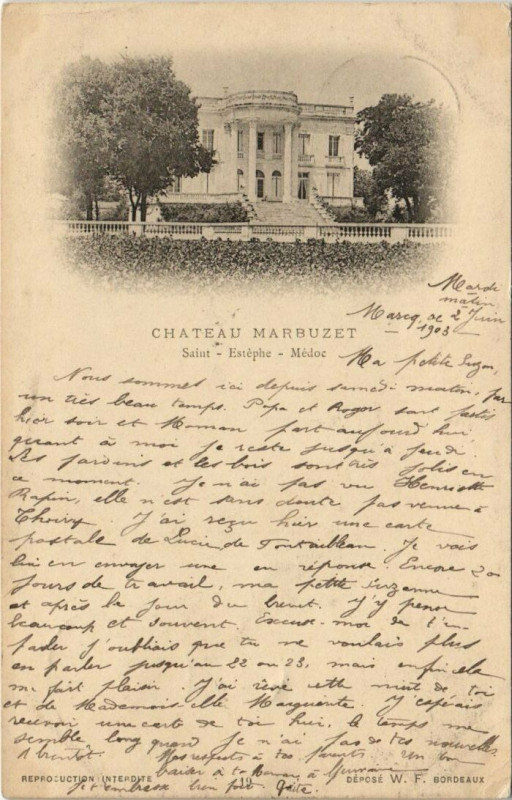 Mardi
matin
Marcq ce 2 Juin
1903
CHATEAU MARBUZET
Saint - Estèphe - Médoc
Ma petite Suzon,
Nous sommes ici depuis samedi matin, par
un très beau temps. Papa et Roger sont partis
hier soir et Maman part aujourd'hui
quant à moi je reste jusqu'à jeudi.
Les jardins et les bois sont très jolis en
ce moment. Je n'ai pas vu Henriette
Rapin, elle n'est sans doute pas venue à
Thoiry. J'ai reçu hier une carte
postale de Lucie de Fontainbleau. Je vais
lui en envoyer une en réponse. Encore 20
jours de travail, ma petite Suzanne
et après le jour du brevet. J'y pense
beaucoup et souvent. Excuse-moi de t'en
parler j'oubliais que tu ne voulais plus
en parler jusqu'au 22 ou 23, mais enfin cela
me fait plaisir. J'ai rêvé cette nuit de toi
et de Mademoiselle Marguerite. J'espérais
recevoir une carte de toi hier, le temps me
semble long quand je n'ai pas de tes nouvelles.
A bientôt. Mes respects à tes parents. Un bon
baiser à ta Maman à Germaine
Je t'embrasse bien fort
REPRODUCTION INTERDITE
DÉPOSÉ W. F. BORDEAUX